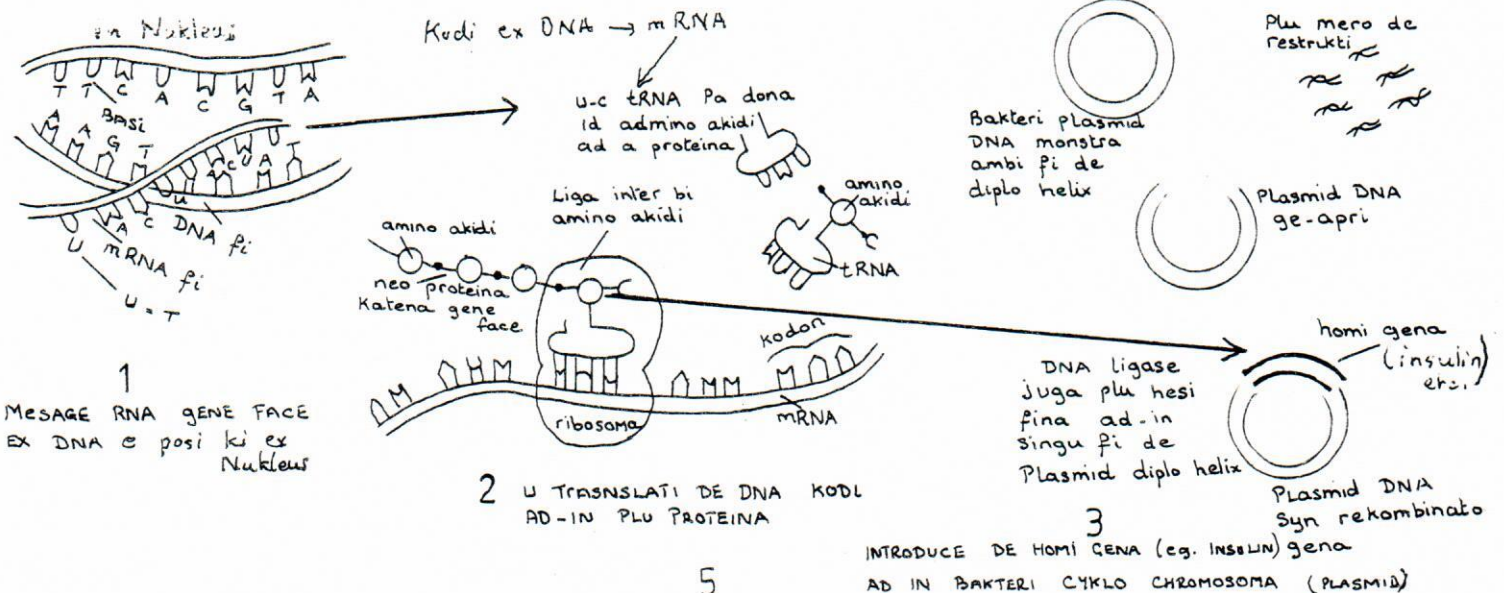 en Nukleus
T T C A C G T A
BASI
A A G T
A C U A T
U
C
DNA fi
U A
mRNA fi
U = T
1
MESAGE RNA GENE FACE
EX DNA e posi ki ex
Nukleus
Kodi ex DNA → mRNA
u-c tRNA Pa dona
id admino akidi
ad a proteina
amino
akidi
tRNA
Liga inter bi
amino akidi
amino akidi
neo proteina
Katena gene
face
kodon
ribosoma
mRNA
2 U TRASNSLATI DE DNA KODI
AD-IN PLU PROTEINA
Plu mero de
restrukti
Bakteri plasmid
DNA monstra
ambi fi de
diplo helix
Plasmid DNA
ge-apri
homi gena
(insulin
DNA ligase
juga plu hesi
fina ad-in
singu fi de
Plasmid diplo helix
Plasmid DNA
Syn rekombinato
3
INTRODUCE DE HOMI GENA (eg. INSULIN) gena
AD IN BAKTERI CYKLO CHROMOSOMA (PLASMID)
5